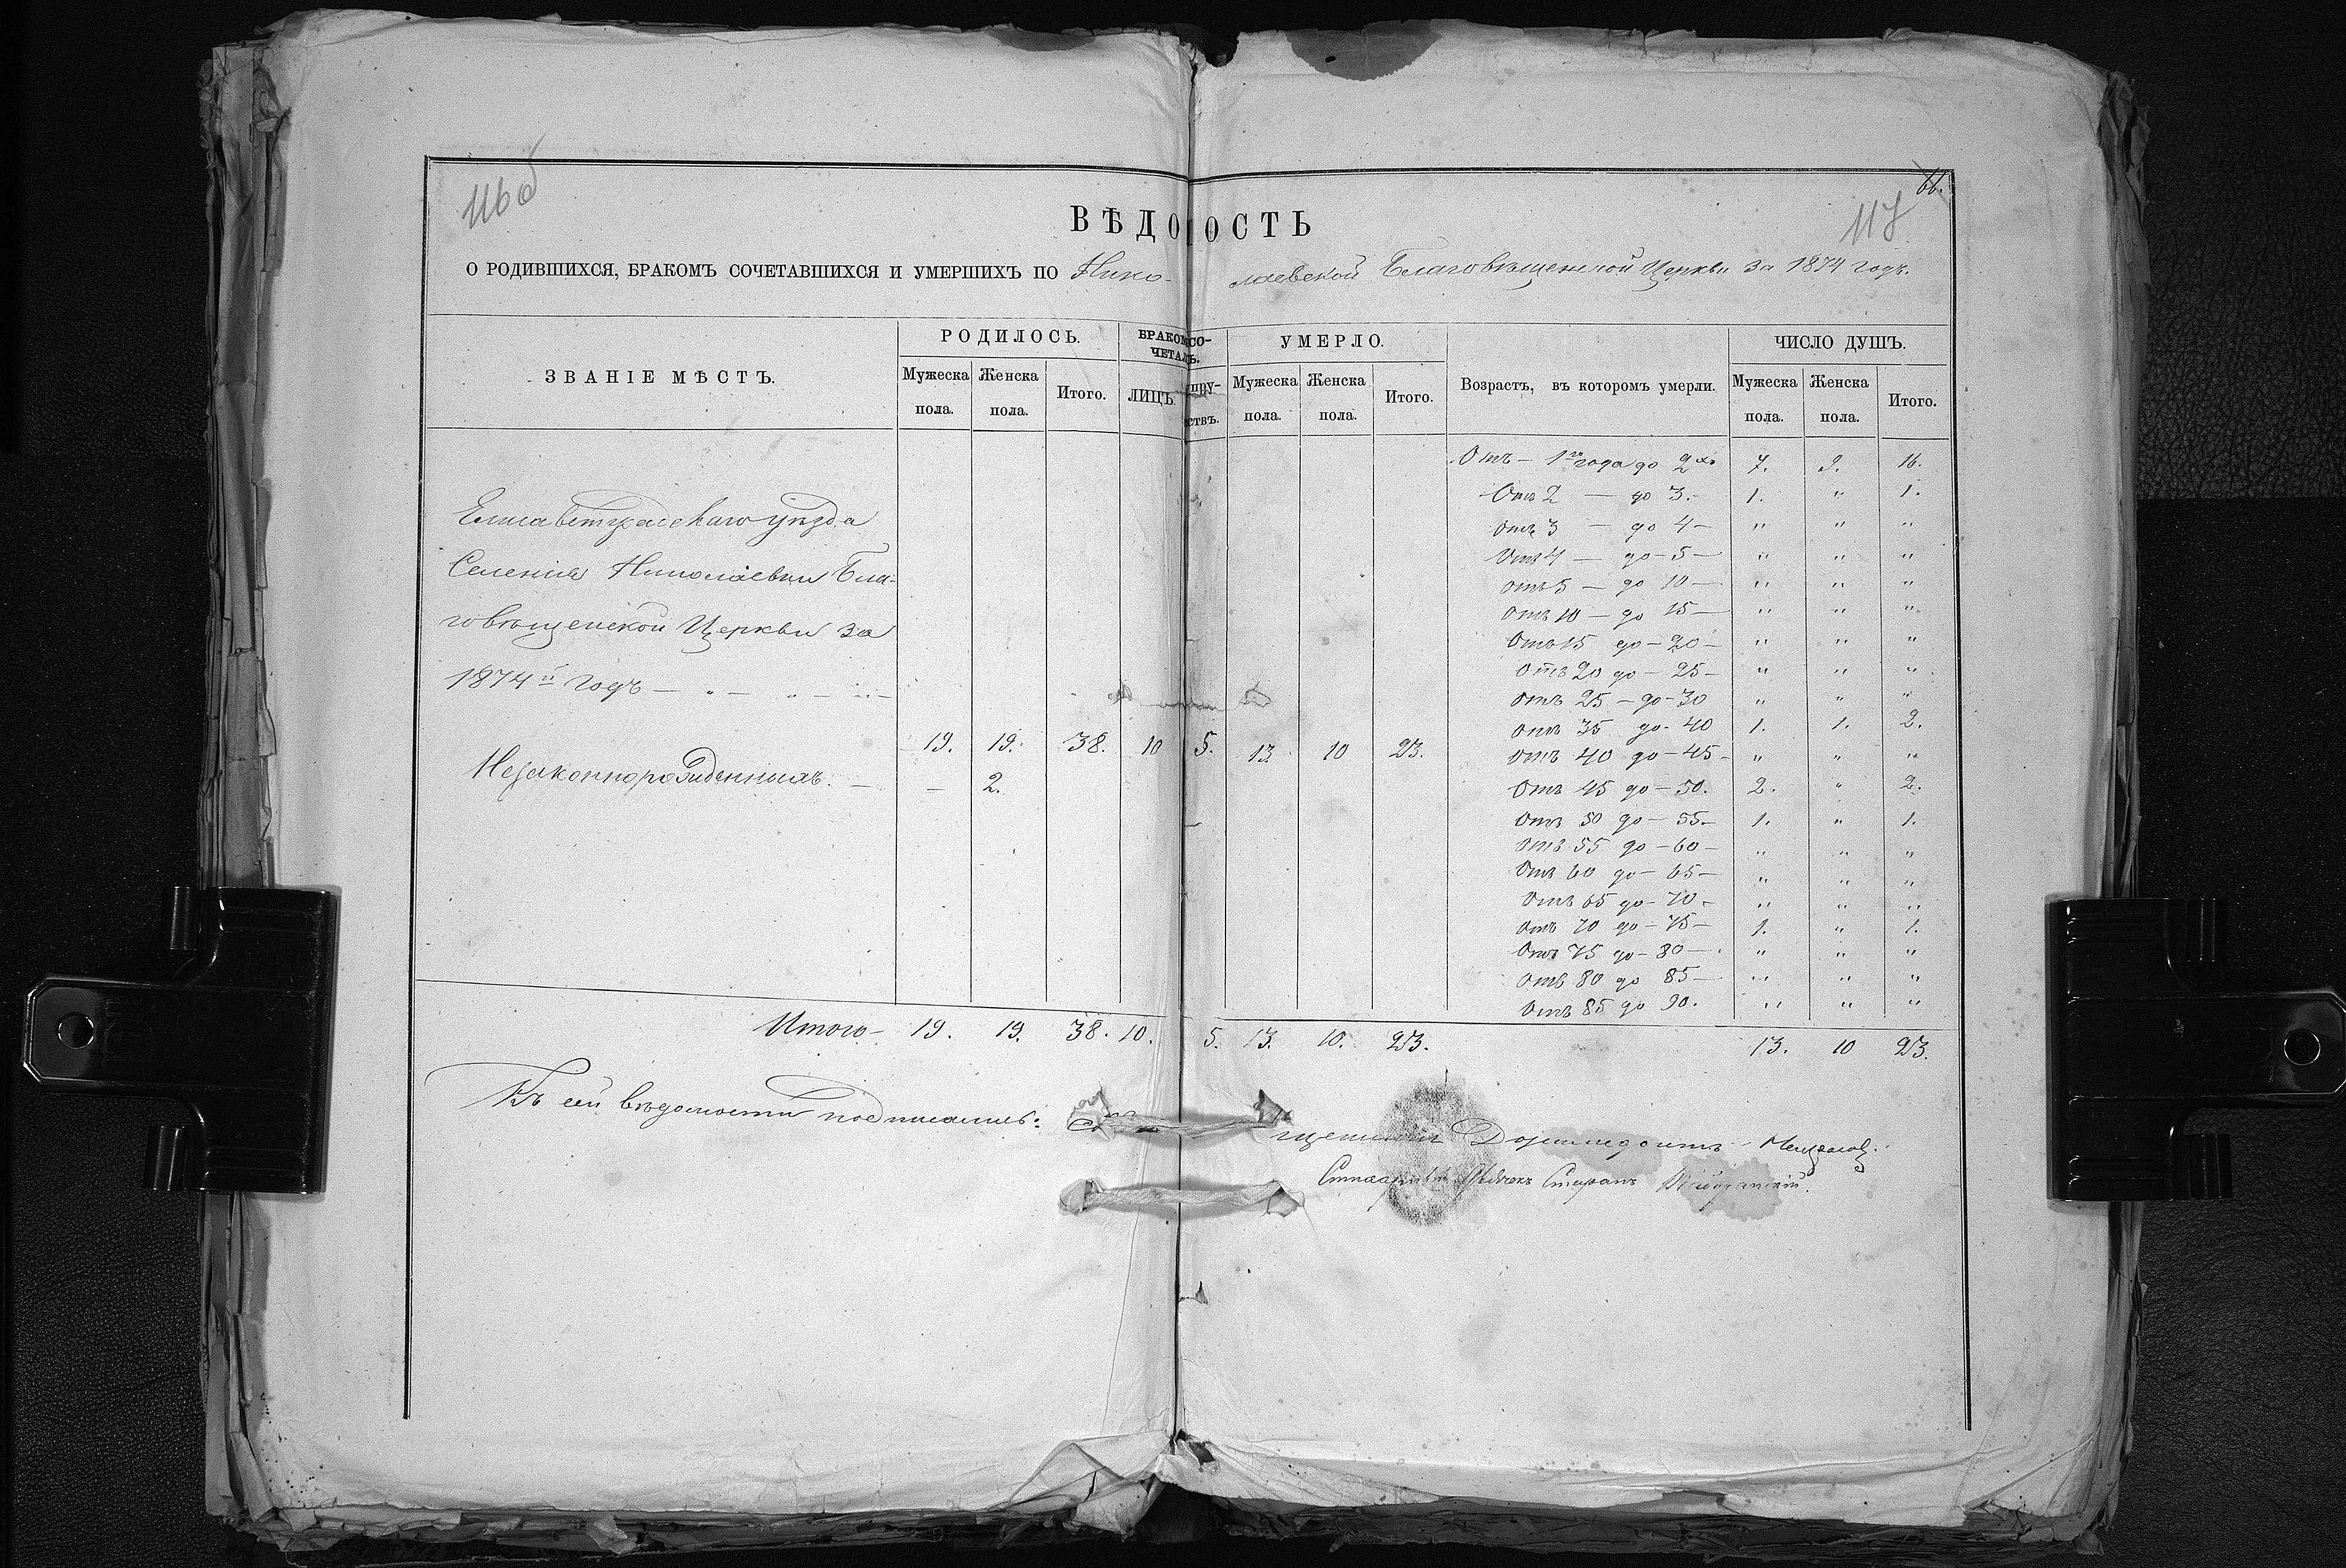 116 об
66.
117
ВѢДОМОСТЬ
О РОДИВШИХСЯ, БРАКОМЪ СОЧЕТАВШИХСЯ И УМЕРШИХЪ ПО Нико- лаевской Благовѣщенской Церкви за 1874 годъ.
ЗВАНІЕ МѢСТЪ. РОДИЛОСЬ. БРАКОМЪ СО- УМЕРЛО. Возрастъ, въ которомъ умерли. ЧИСЛО ДУШЪ.
ЧЕТАЛ Ъ.
Мужеска пола. Женска пола. Итого. ЛИЦЪ. пру- ствъ. Мужеска пола. Женска пола. Итого. Мужеска пола. Женска пола. Итого.
Отъ — 1го года до 2хъ 7. 9. 16.
Отъ 2 — до 3. 1. " 1.
Елисаветградскаго уѣзда
Отъ 3 — до 4 — " " "
Отъ 4 — до — 5 — " " "
Селенія Николаевки Бла-
Отъ 5 — до 10 — " " "
Отъ 10 — до 15 — " " "
говѣщенской Церкви за
Отъ 15 до — 20 — " " "
Отъ 20 до — 25 — " " "
1874й годъ — " — " — " —
Отъ 25 — до — 30 " " "
Отъ 35 до — 40 1. 1. 2.
19. 19. 38. 10 5. 13. 10 23.
Отъ 40 до — 45 — " " "
Незаконнорожденныхъ. — — 2.
Отъ 45 до — 50. 2. " 2.
Отъ 50 до — 55 — 1. " 1.
Отъ 55 до — 60 — " " "
Отъ 60 до — 65 — " " "
Отъ 65 до — 70 — " " "
Отъ 70 до — 75 — 1. " 1.
Отъ 75 до — 80 — " " "
Отъ 80 до 85 — " " "
Отъ 85 до 90. " " "
Итого — 19. 19. 38. 10. 5. 13. 10. 23. 13. 10 23.
Къ сей вѣдомости подписались: щенникъ
Стефанъ